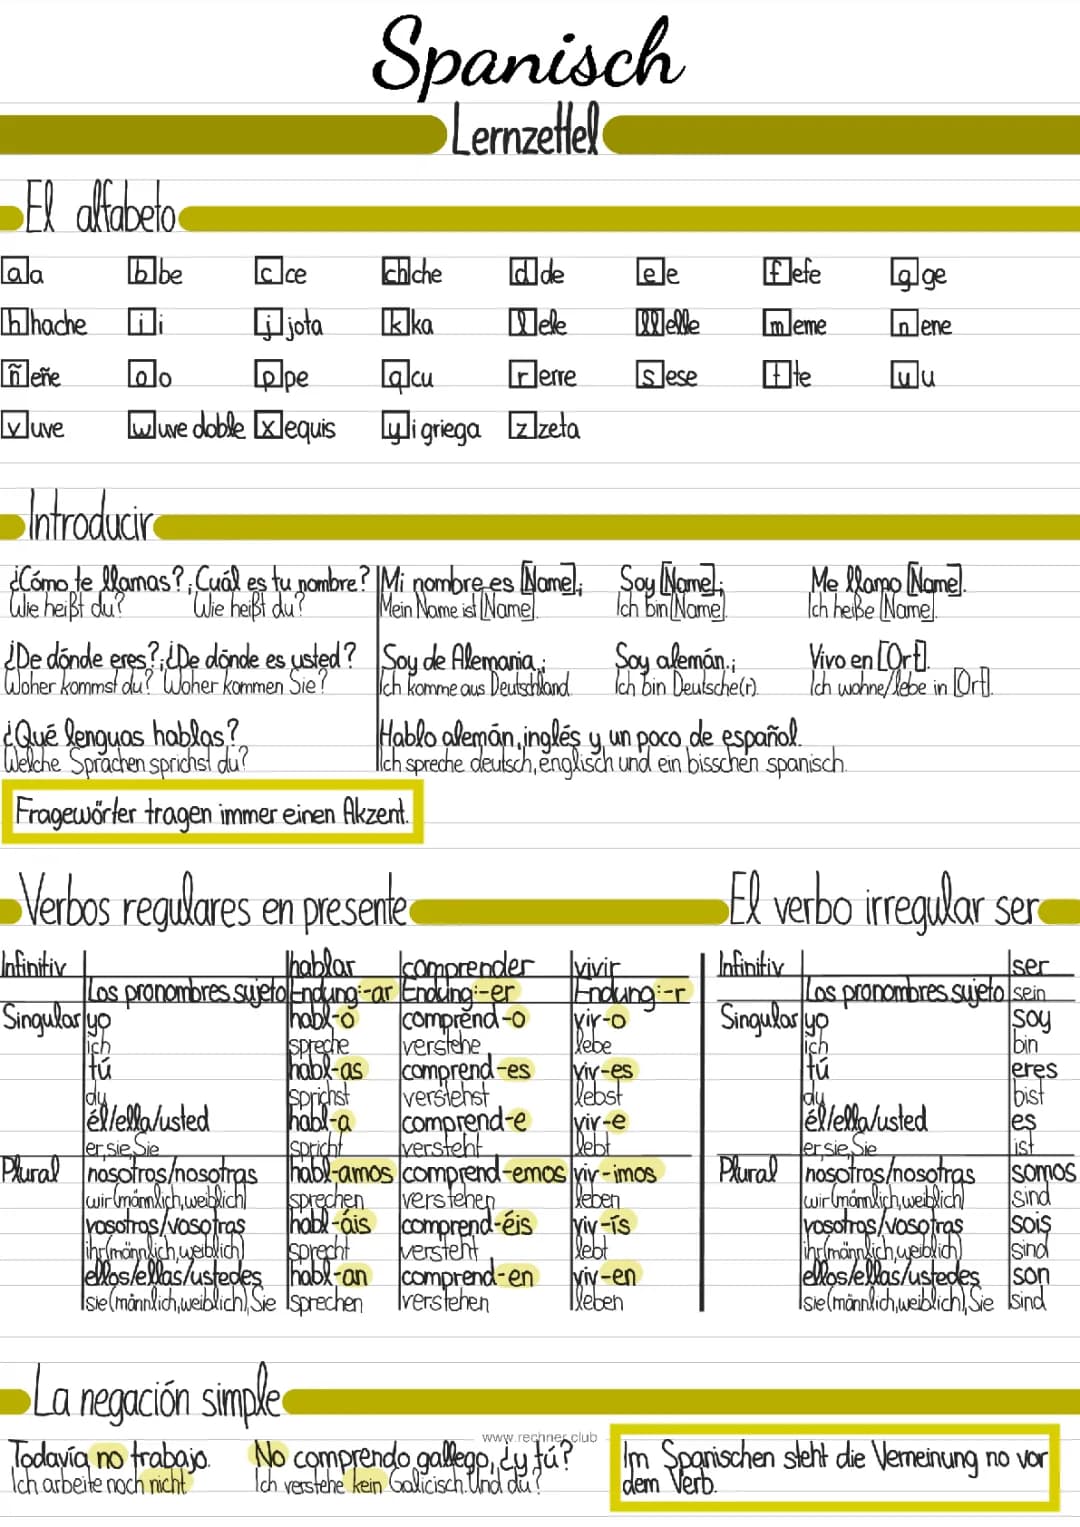 Spanisch
Lernzettel
El alfabeto
a a b be c ce ch che d de e e f efe g ge
h hache i i j jota k ka l ele ll elle m eme n ene
ñ eñe o o p pe q cu r erre s ese t te u u
v uve w uve doble x equis y i griega z zeta
Introducir
¿Cómo te llamas?; Cuál es tu nombre? Mi nombre es [Name].; Soy [Name].; Me llamo [Name].
Wie heißt du? Wie heißt du? Mein Name ist [Name]. Ich bin [Name]. Ich heiße [Name].
¿De dónde eres?; ¿De dónde es usted? Soy de Alemania.; Soy alemán.; Vivo en [Ort].
Woher kommst du? Woher kommen Sie? Ich komme aus Deutschland. Ich bin Deutsche(r). Ich wohne/lebe in [Ort].
¿Qué lenguas hablas? Hablo alemán, inglés y un poco de español.
Welche Sprachen sprichst du? Ich spreche deutsch, englisch und ein bisschen spanisch.
Fragewörter tragen immer einen Akzent.
Verbos regulares en presente El verbo irregular ser
Infinitiv hablar comprender vivir Infinitiv ser
Los pronombres sujeto Endung:-ar Endung:-er Endung:-r Los pronombres sujeto sein
Singular yo habl-o comprend-o vir-o Singular yo soy
ich spreche verstehe lebe ich bin
tú habl-as comprend-es viv-es tú eres
du sprichst verstehst lebst du bist
él/ella/usted habl-a comprend-e viv-e él/ella/usted es
er, sie, Sie spricht versteht lebt er, sie, Sie ist
Plural nosotros/nosotras habl-amos comprend-emos viv-imos Plural nosotros/nosotras somos
wir (männlich, weiblich) sprechen verstehen leben wir (männlich, weiblich) sind
vosotros/vosotras habl-áis comprend-éis viv-ís vosotros/vosotras sois
ihr (männlich, weiblich) sprecht versteht lebt ihr (männlich, weiblich) sind
ellos/ellas/ustedes habl-an comprend-en viv-en ellos/ellas/ustedes son
sie (männlich, weiblich), Sie sprechen verstehen leben sie (männlich, weiblich), Sie sind
La negación simple
www.rechner.club
Todavía no trabajo. No comprendo gallego, ¿y tú? Im Spanischen steht die Verneinung no vor
Ich arbeite noch nicht Ich verstehe kein Galicisch. Und du? dem Verb.